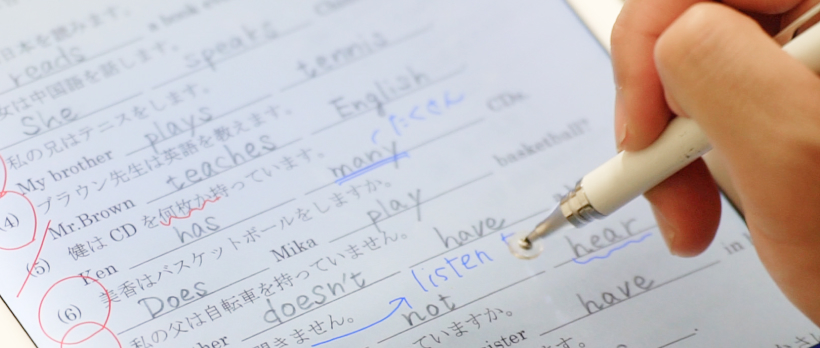 日本を読みます。
reads a book
女は中国語を話します。
She speaks
私の兄はテニスをします。
My brother plays tennis
(4) ブラウン先生は英語を教えます。
Mr.Brown teaches English
(たくさん
(5) 健は CD を何枚か持っています。
Ken has many CDs
(6) 美香はバスケットボールをしますか。
Does Mika play basketball?
私の父は自転車を持っていません。
her doesn't have
listen t
きません。
not hear
ていますか。
ister have in